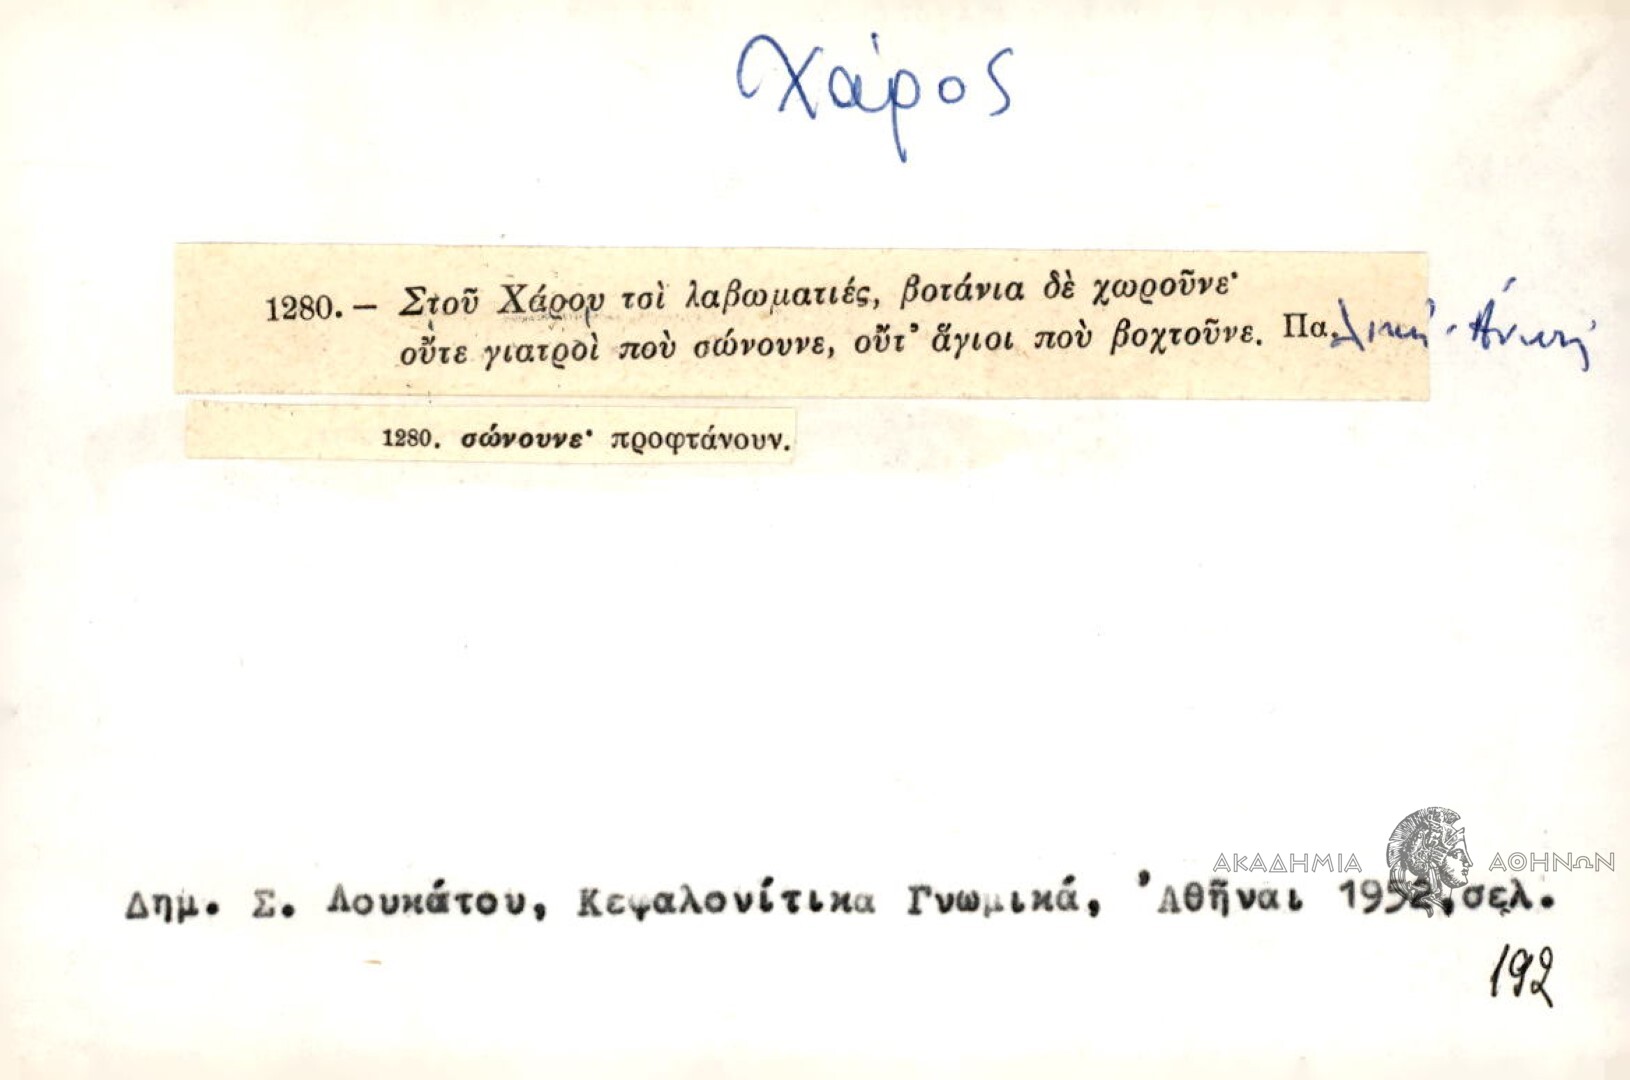 Χάρος
1280. — Στοῦ Χάρου τσὶ λαβωματιές, βοτάνια δὲ χωροῦνε·
οὔτε γιατροὶ ποὺ σώνουνε, οὔτ' ἅγιοι ποὺ βοχτοῦνε. Παλική
1280. σώνουνε· προφτάνουν.
ΑΚΑΔΗΜΙΑ ΑΘΗΝΩΝ
Δημ. Σ. Λουκάτου, Κεφαλονίτικα Γνωμικά, Ἀθῆναι 1952, σελ.
192